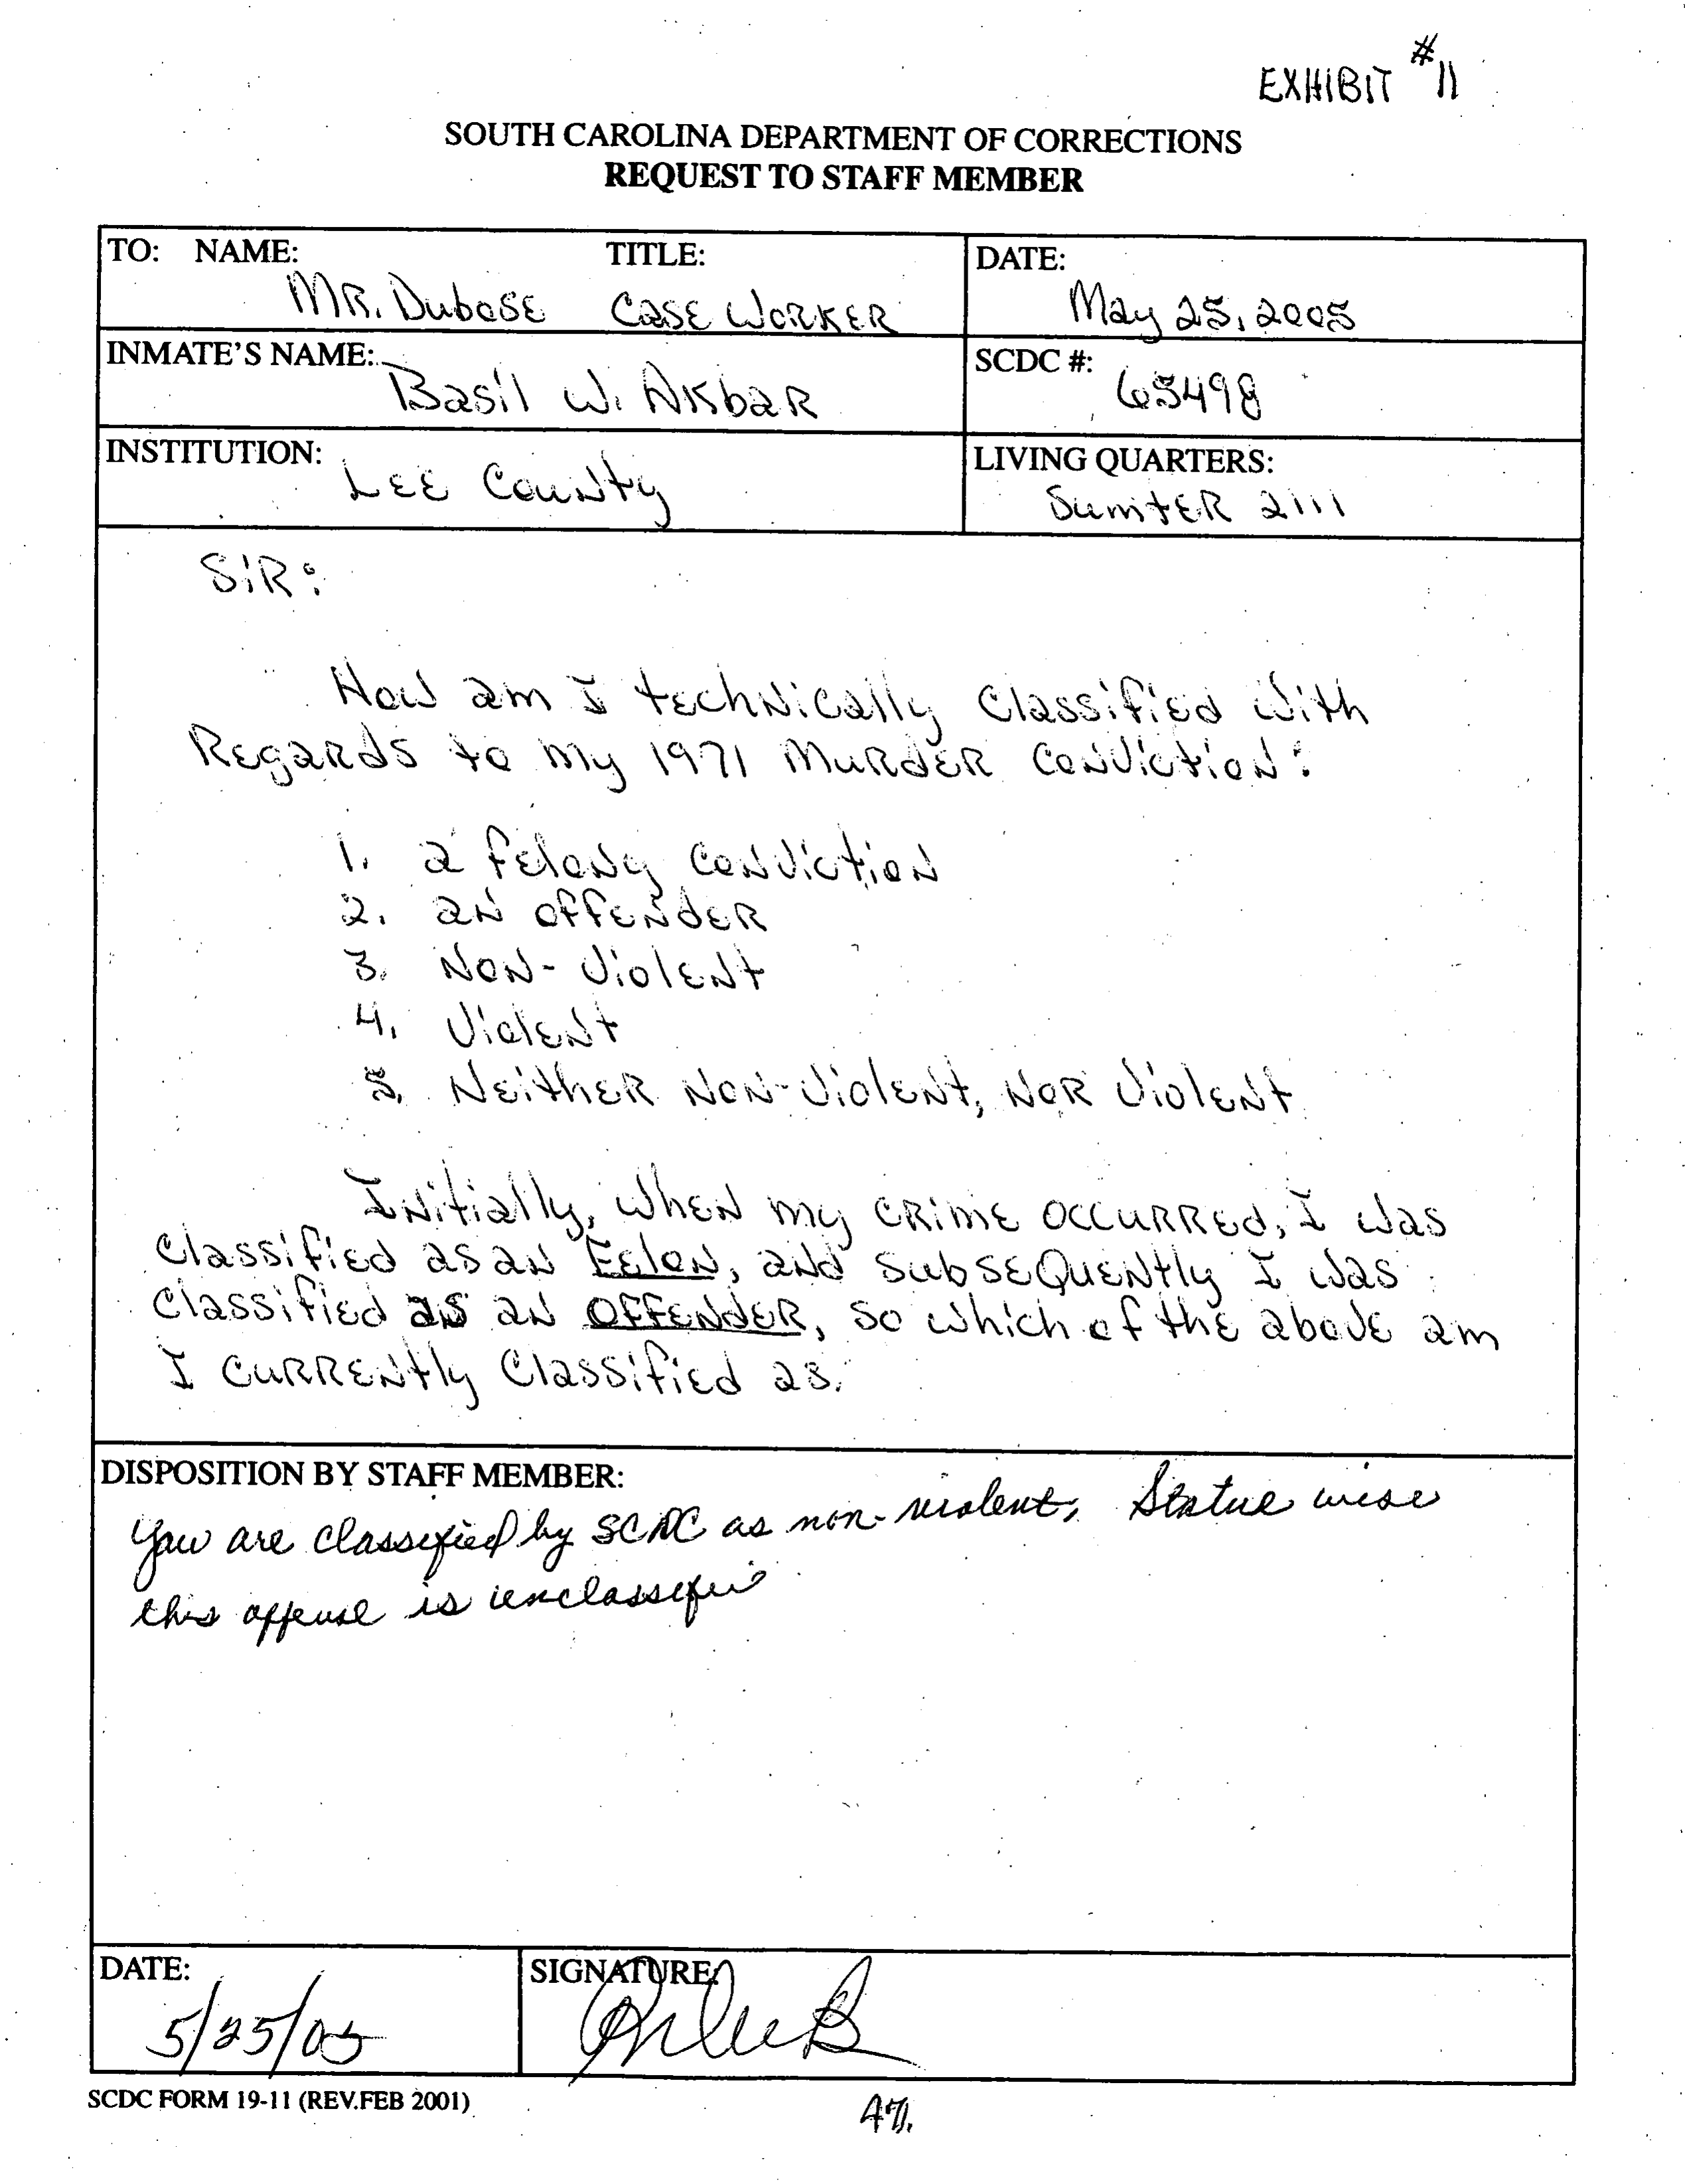 EXHIBIT #11
SOUTH CAROLINA DEPARTMENT OF CORRECTIONS
REQUEST TO STAFF MEMBER
TO: NAME: TITLE: DATE:
MR. Dubose Case Worker May 25, 2005
INMATE'S NAME: Basil W. Akbar SCDC #: 65498
INSTITUTION: Lee County LIVING QUARTERS: Sumter 2111
Sir:
How am I technically classified with
Regards to my 1971 Murder Conviction:
1. a felony conviction
2. an offender
3. Non-Violent
4. Violent
5. Neither Non-Violent, Nor Violent
Initially, when my crime occurred, I was
classified as an Felon, and subsequently I was
classified as an OFFENDER, so which of the above am
I currently classified as.
DISPOSITION BY STAFF MEMBER:
You are classified by SCDC as non-violent, Statue wise
this offense is unclassified
DATE: 5/25/05 SIGNATURE:
SCDC FORM 19-11 (REV.FEB 2001)
47.